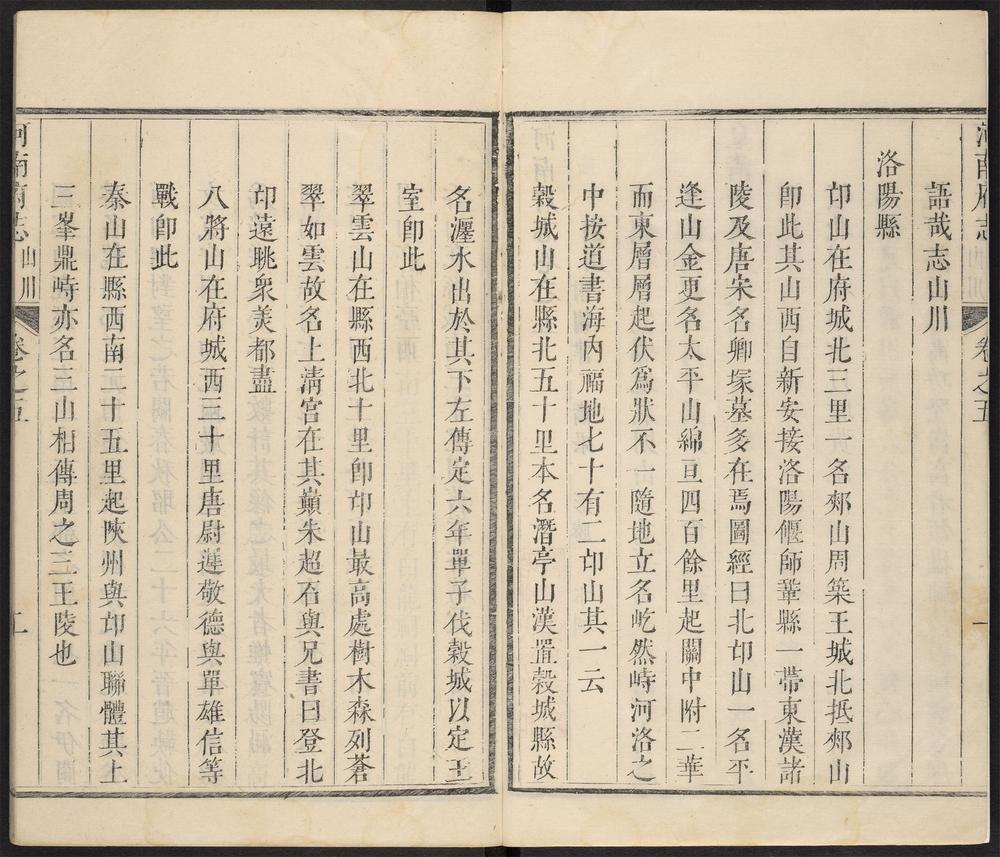 河南府志 山川 卷之五 一
語哉志山川
洛陽縣
邙山在府城北三里一名郟山周築王城北抵郟山
卽此其山西自新安接洛陽偃師鞏縣一帶東漢諸
陵及唐宋名卿塚墓多在焉圖經曰北邙山一名平
逢山金更名太平山綿亘四百餘里起關中附二華
而東層層起伏爲狀不一隨地立名屹然峙河洛之
中按道書海内福地七十有二邙山其一云
穀城山在縣北五十里本名潛亭山漢置穀城縣故
名瀍水出於其下左傳定六年單子伐穀城以定王
室卽此
翠雲山在縣西北十里卽邙山最高處樹木森列蒼
翠如雲故名上清宮在其巔朱超石與兄書曰登北
邙遠眺衆美都盡
八將山在府城西三十里唐尉遲敬德與單雄信等
戰卽此
秦山在縣西南二十五里起陜州與邙山聯體其上
三峯鼎峙亦名三山相傳周之三王陵也
河南府志 山川 卷之五